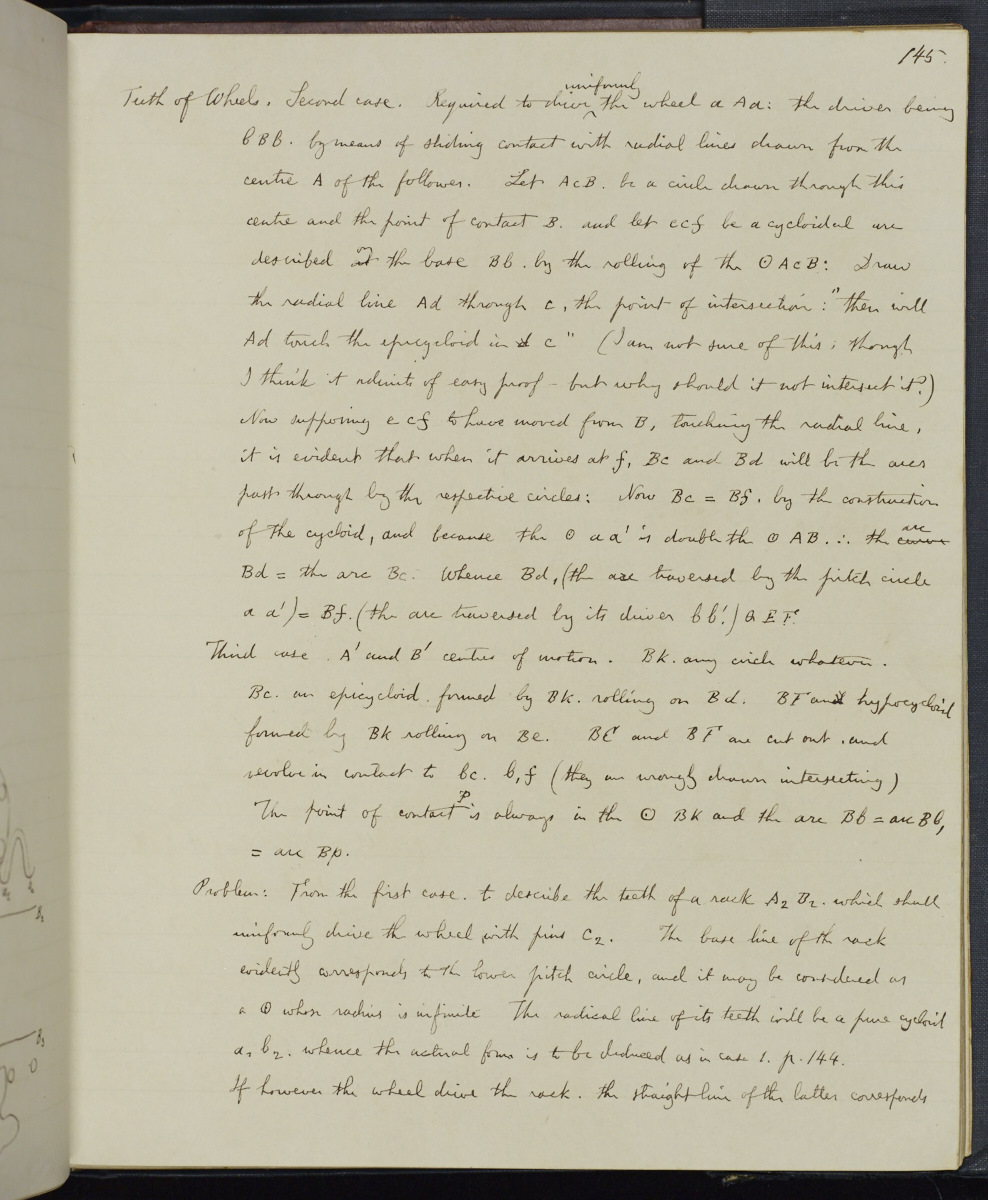 145.
uniformly
Teeth of Wheels. Second case. Required to drive ^ the wheel a Ad: the driver being
b B b. by means of sliding contact with radial lines drawn from the
centre A of the follower. Let AcB. be a circle drawn through this
centre and the point of contact B. and let ecf be a cycloidal arc
described on the base Bb. by the rolling of the ⊙ AcB: Draw
the radial line Ad through c, the point of intersection: "then will
Ad touch the epicycloid in c" (I am not sure of this; though
I think it admits of easy proof - but why should it not intersect it?)
Now supposing ecf to have moved from B, touching the radial line,
it is evident that when it arrives at f, Bc and Bd will be the arcs
past through by the respective circles: Now Bc = Bf. by the construction
of the cycloid, and because the ⊙ a a' is double the ⊙ AB. ∴ the arc
Bd = the arc Bc. Whence Bd, (the arc traversed by the pitch circle
a a') = Bf. (the arc traversed by its driver bb'.) Q E F.
Third case. A' and B' centres of motion. Bk. any circle whatever.
Bc. an epicycloid. formed by Bk. rolling on Bd. BF an hypocycloid
formed by Bk rolling on Be. BC and BF are cut out. and
revolve in contact to bc. b,f (they are wrongly drawn intersecting)
The point of contact p is always in the ⊙ Bk and the arc Bb = arc Bb,
= arc Bp.
Problem: From the first case. to describe the teeth of a rack A2 B2. which shall
uniformly drive the wheel with pins C2. The base line of the rack
evidently corresponds to the lower pitch circle, and it may be considered as
a ⊙ whose radius is infinite The radical line of its teeth will be a pure cycloid
a, b2. whence the actual form is to be deduced as in case 1. p. 144.
If however the wheel drive the rack. the straight line of the latter corresponds